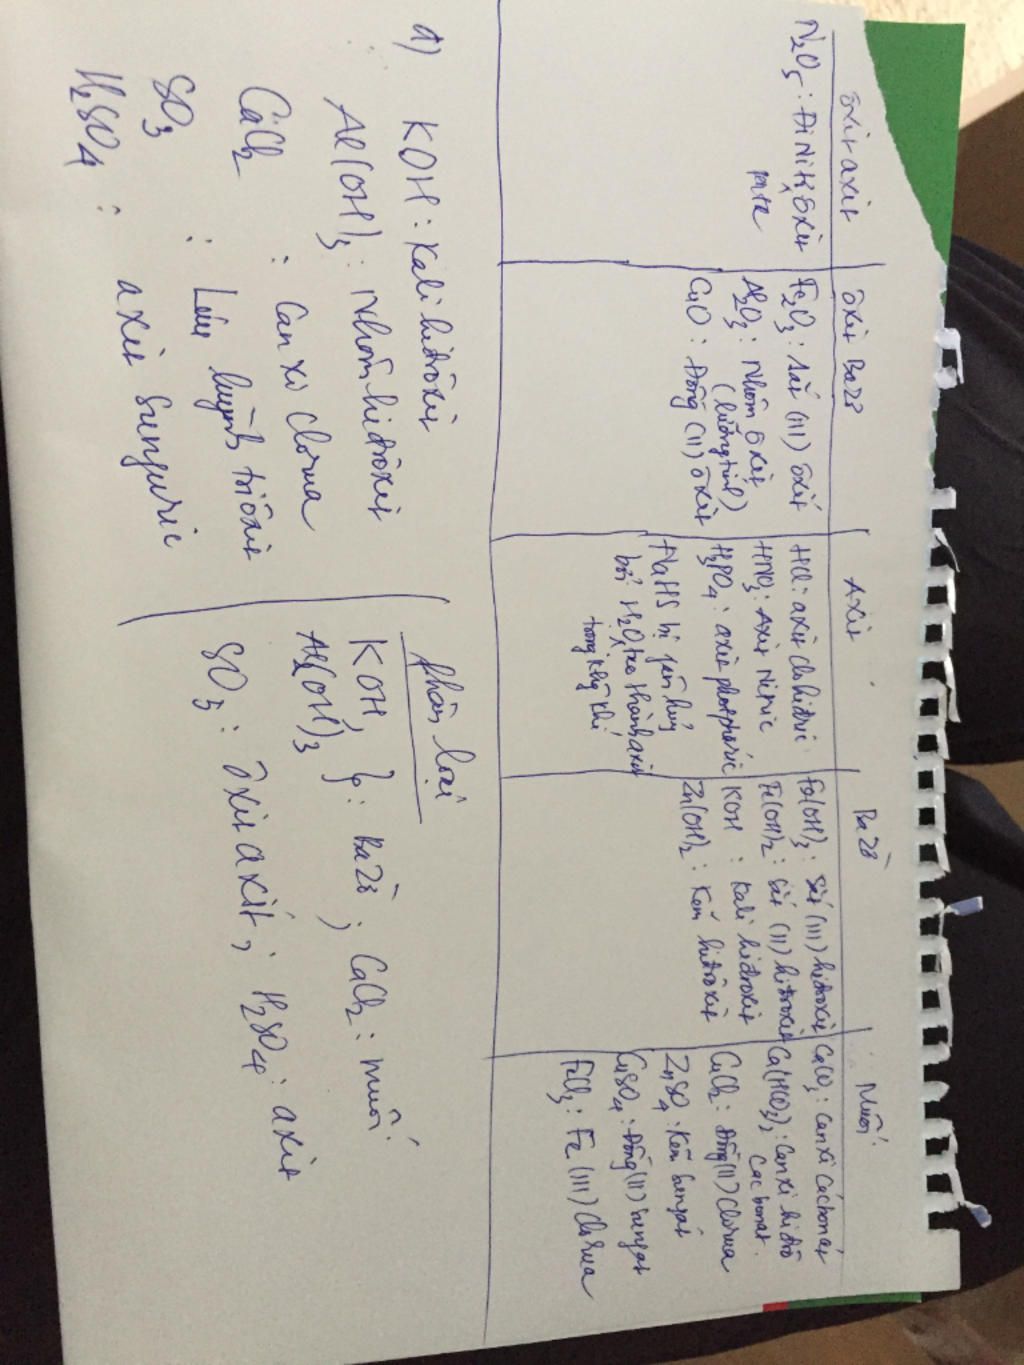 ôxit axit
N2O5: Đinitơ
penta
ôxit
ôxit Bazơ
Fe2O3: sắt (III) ôxit
Al2O3: Nhôm ôxit
(lưỡng tính)
CuO: Đồng (II) ôxit
Axit
HCl: axit clohiđric
HNO3: Axit Nitric
H3PO4: axit photphoric
NaHS bị phân huỷ
bởi H2O tạo thành axit
trong không khí
Bazơ
Fe(OH)3: Sắt (III) hiđroxit
Fe(OH)2: sắt (II) hiđroxit
KOH: Kali hiđroxit
Zn(OH)2: Kẽm hiđrôxit
Muối
CaCO3: Canxi Cacbonat
Ca(HCO3)2: Canxi hiđrô
Cacbonat.
CuCl2: Đồng(II) Clorua
ZnSO4: Kẽm sunfat
CuSO4: Đồng(II) sunfat
FeCl3: Fe (III) Clorua
1) KOH: Kali hiđrôxit
Al(OH)3: Nhôm hiđrôxit
CaCl2: Canxi clorua
SO3: Lưu huỳnh triôxit
H2SO4: axit sunfuric
phân loại
KOH,
Al(OH)3 }: Bazơ; CaCl2: muối
SO3: ôxit axit; H2SO4: axit